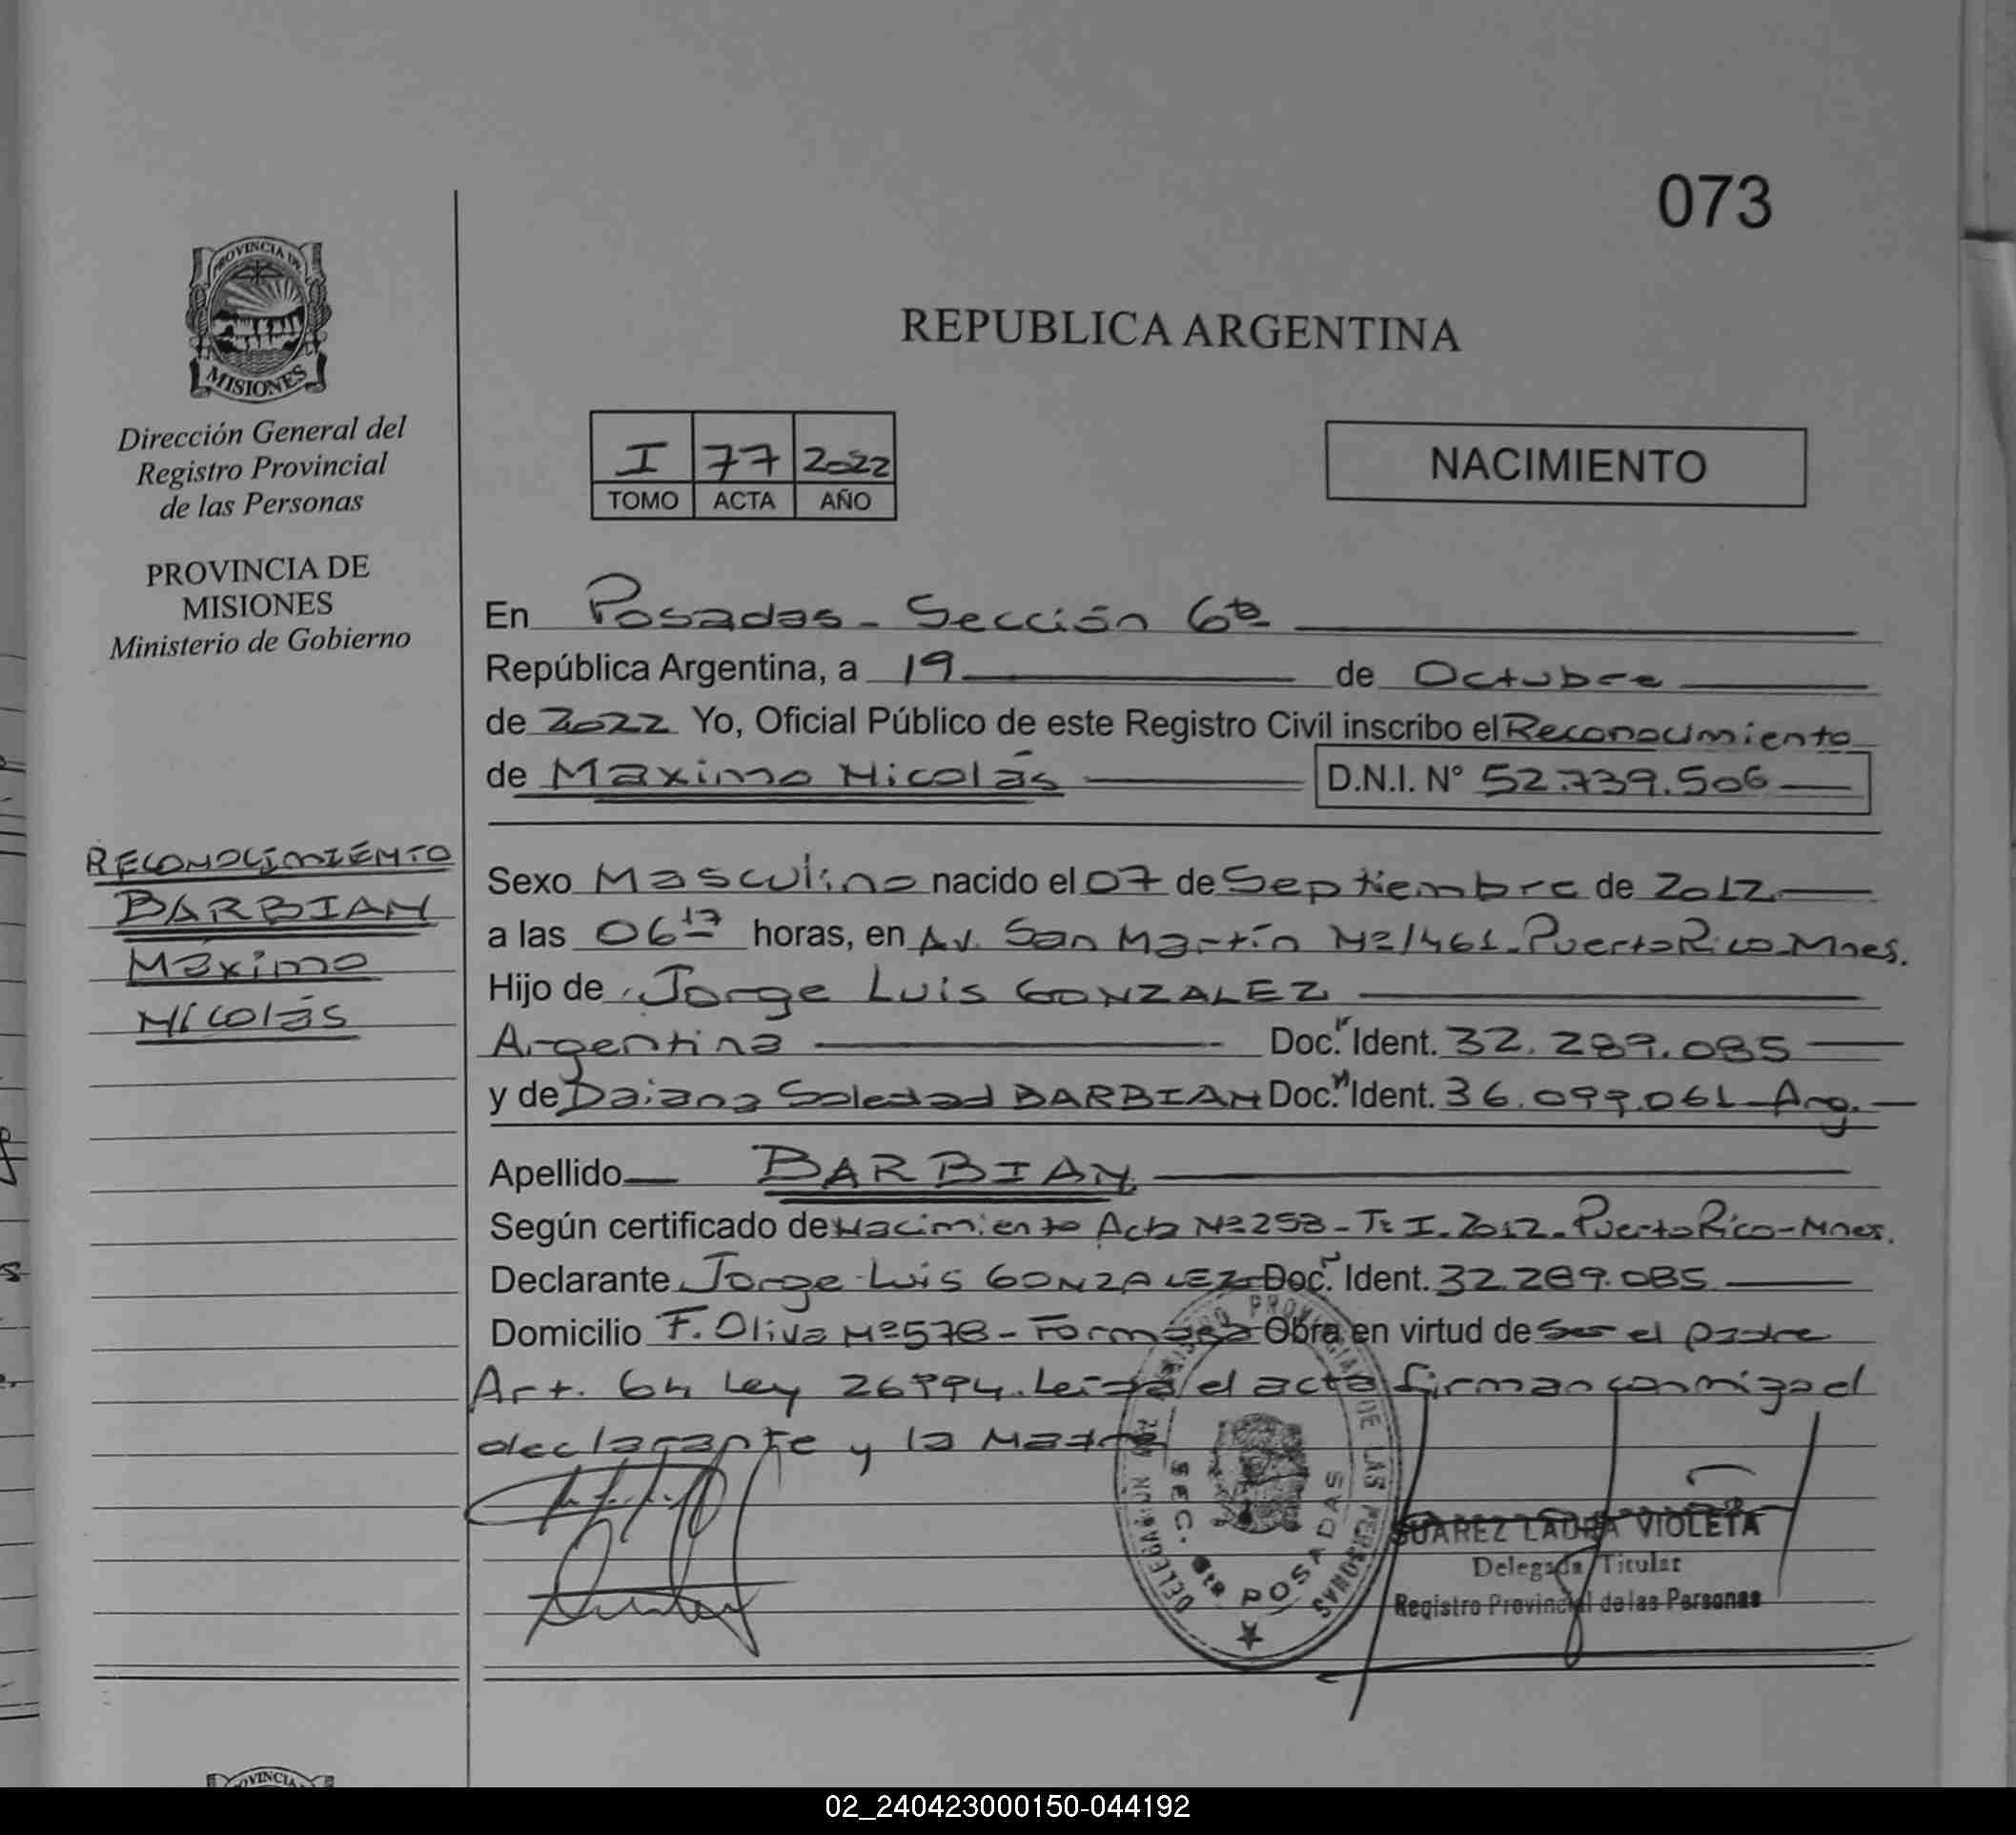 073
PROVINCIA DE
MISIONES
Dirección General del
Registro Provincial
de las Personas
PROVINCIA DE
MISIONES
Ministerio de Gobierno
REPUBLICA ARGENTINA
I 77 2022
TOMO ACTA AÑO
NACIMIENTO
En Posadas - Sección 6ta
República Argentina, a 19 de Octubre
de 2022 Yo, Oficial Público de este Registro Civil inscribo el Reconocimiento
de Máximo Nicolás D.N.I. N° 52.739.506
RECONOCIMIENTO
BARBIAN
Máximo
Nicolás
Sexo Masculino nacido el 07 de Septiembre de 2012
a las 06 17 horas, en Av. San Martín Nº 1461 - Puerto Rico - Mnes.
Hijo de Jorge Luis GONZALEZ
Argentina Doc. Ident. 32.289.085
y de Daiana Soledad BARBIAN Doc. Ident. 36.099.061 - Arg.
Apellido BARBIAN
Según certificado de Nacimiento Acta Nº 258 - Tº I - 2012 - Puerto Rico - Mnes.
Declarante Jorge Luis GONZALEZ Doc. Ident. 32.289.085
Domicilio F. Oliva Nº 578 - Formosa Obra en virtud de ser el padre
Art. 64 Ley 26994. Leída el acta firman conmigo el
declarante y la Madre
REGISTRO PROVINCIAL DE LAS PERSONAS
DELEGACION
SEC. 6ta POSADAS
SUAREZ LAURA VIOLETA
Delegada Titular
Registro Provincial de las Personas
PROVINCIA
02_240423000150-044192